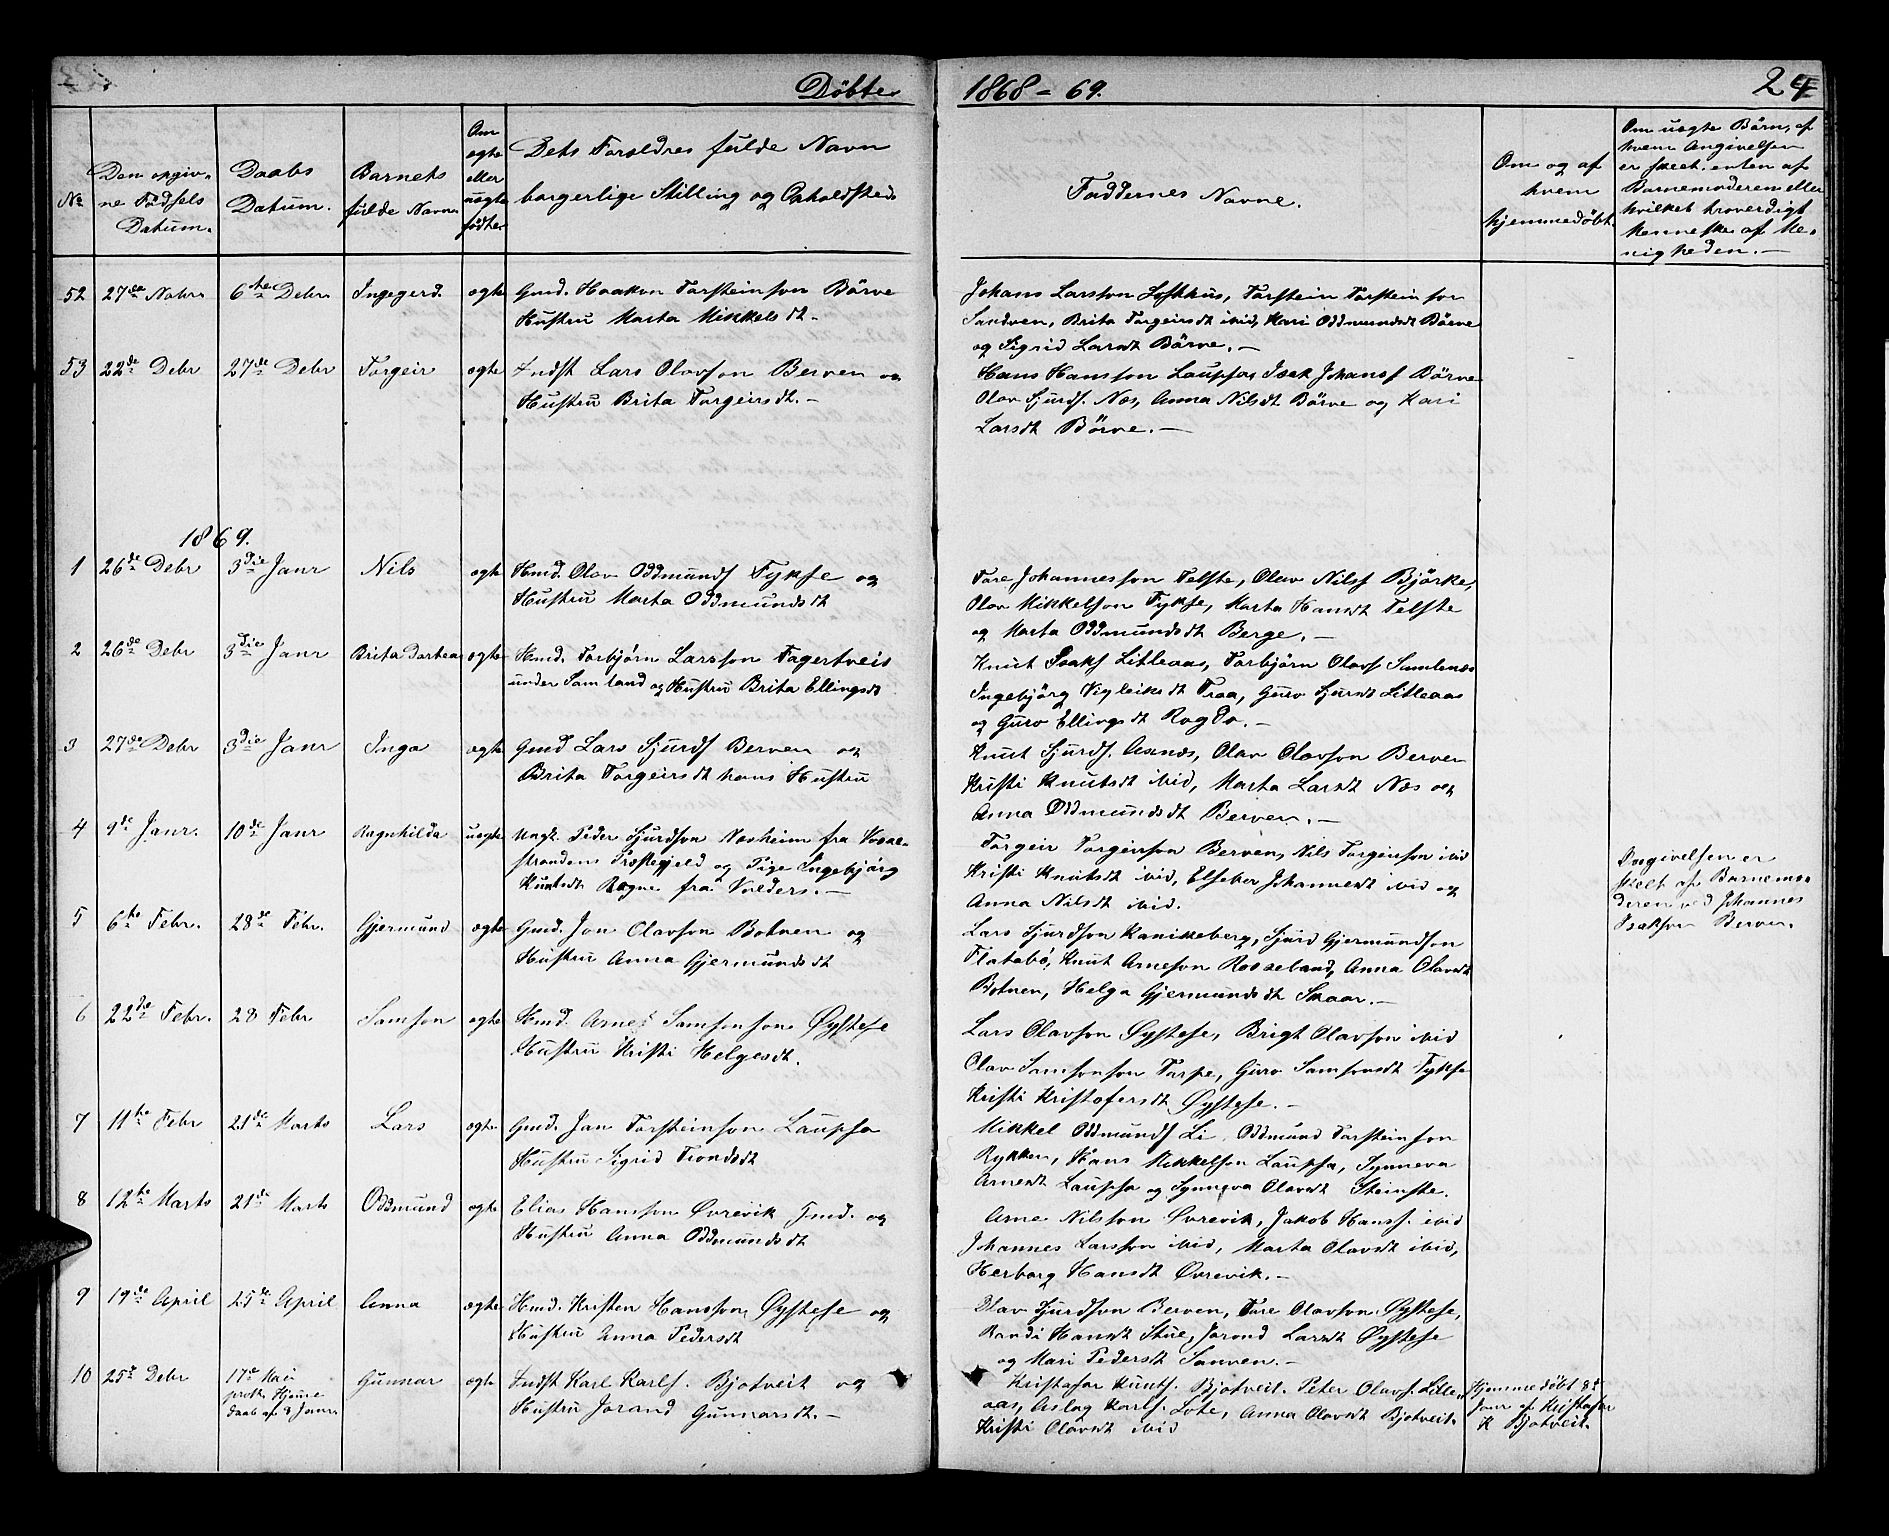 Döbte 1868-69. 24
No
Den opgiv-
ne Födsels
Datum.
Daabs
Datum.
Barnets
fulde Navn
Om
ægte
eller
uægte
födte
Dets Foræeldres fulde Navn
borgerlige Stilling og Opholdsted
Faddernes Navne.
Om og af
hvem
hjemmedöbt.
Om uægte Börn, af
hvem Angivelsen
er skeet, enten af
Barnemoderen eller
hvilket troverdigt
Menneske af Me-
nigheden.-
52 27de Nobr. 6te Debr. Ingegerd. ægte Gmd. Haakon Torsteinson Börve
Hustru Marta Mikkelsdt.
Johans Larsson Lofthus, Torstein Torsteinson
Sandven, Brita Torgeirsdt ibid, Kari Oddmundsdt Börve
og Sigrid Larsdt Börve.-
53 22de Debr 27de Debr Torgeir ægte Indst Lars Olavson Berven og
Hustru Brita Torgeirsdt.-
Hans Hansson Laupsa, Isak Johanss Börve
Olav Sjurds. Næs, Anna Nilsdt Börve og Kari
Larsdt Börve.-
1869.
1 26de Debr 3die Janr Nils ægte Hmd. Olav Oddmunds Fykse og
Hustru Marta Oddmundsdt
Tore Johannesson Telste, Olav Nilss Bjørke,
Olav Mikkelson Fykse, Marta Hansdt Telste
og Marta Oddmundsdt Berge.-
2 26de Debr 3die Janr Brita Dorthea ægte Hmd. Torbjørn Larsson Fagertveit
under Samland og Hustru Brita Ellingsdt
Knut Isaks Litleaas, Torbjörn Olavs. Samlenæs
Ingebjörg Vigleiksdt Traa, Guro Sjursdt Litleaas
og Guro Ellingsdt Ragde.-
3 27de Debr 3die Janr Inga ægte Gmd Lars Sjurds Berven og
Brita Torgeirsdt hans Hustru
Knut Sjurds. Axnæs, Olav Olavson Berven
Kristi Knutsdt ibid, Marta Larsdt Næs og
Anna Oddmundsdt Berven.-
4 9de Janr. 10de Janr Ragnhilda uægte Ungk. Peder Sjurdson Næsheim fra Vossæ-
strandens Præstegjeld og Pige Ingebjörg
Knutsdt Rogne fra Valders.-
Torgeir Torgeirson Berven, Nils Torgeirson ibid
Kristi Knutsdt ibid, Elseber Johannesdt ibid og
Anna Nilsdt ibid.
Angivelsen er
skeet af Barnemo-
deren ved Johannes
Isakson Berven.
5 6te Febr. 28de Febr. Gjermund ægte Gmd. Jon Olavson Botnen og
Hustru Anna Gjermundsdt
Lars Sjurdson Kanikeberg, Sjurd Gjermundson
Flatabö, Knut Arneson Rosseland, Anna Olavsdt
Botnen, Helga Gjermundsdt Skaar.-
6 22de Febr. 28 Febr Samson ægte Hmd. Arne Samsonson Øystese
Hustru Kristi Helgesdt.
Lars Olavson Øystese, Brigt Olavson ibid
Olav Samsonson Torpe, Guro Samsonsdt Fykse
Kristi Kristofersdt Øystese.-
7 11te Febr 21de Marts Lars ægte Gmd. Jan Torsteinson Laupsa
Hustru Sigrid Trondsdt
Mikkel Oddmunds Li, Oddmund Torsteinson
Rykken, Hans Mikkelson Laupsa, Synneva
Arnesdt Laupsa og Synneva Olavsdt Steinstø.
8 12te Marts 21de Marts Oddmund ægte Elias Hansson Øvrevik Gmd. og
Hustru Anna Oddmundsdt
Arne Nilsson Øvrevik, Jakob Hanss. ibid
Johannes Larsson ibid, Marta Olavsdt ibid,
Herborg Hansdt Øvrevik.-
9 19de April 25de April Anna ægte Hmd. Kristen Hansson Øystese og
Hustru Anna Pedersdt
Olav Sjurdson Berven, Tore Olavson Øystese,
Randi Hansdt Stue, Jorond Larsdt Øystese
og Mari Pedersdt Sanven.-
10 25de Debr 17de Mai
prot. Hjeme
daab af 8 Janr. Gunnar ægte Indst Karl Karls. Bjotveit og
Hustru Jorand Gunnarsdt.-
Kristofar Knuts. Bjotveit, Peter Olavs. Litle-
aas, Aslag Karls. Lote, Anna Olavsdt Bjotveit
Kristi Olavsdt ibid
Hjemmedöbt 8de
Janr af Kristofer
K Bjotveit.